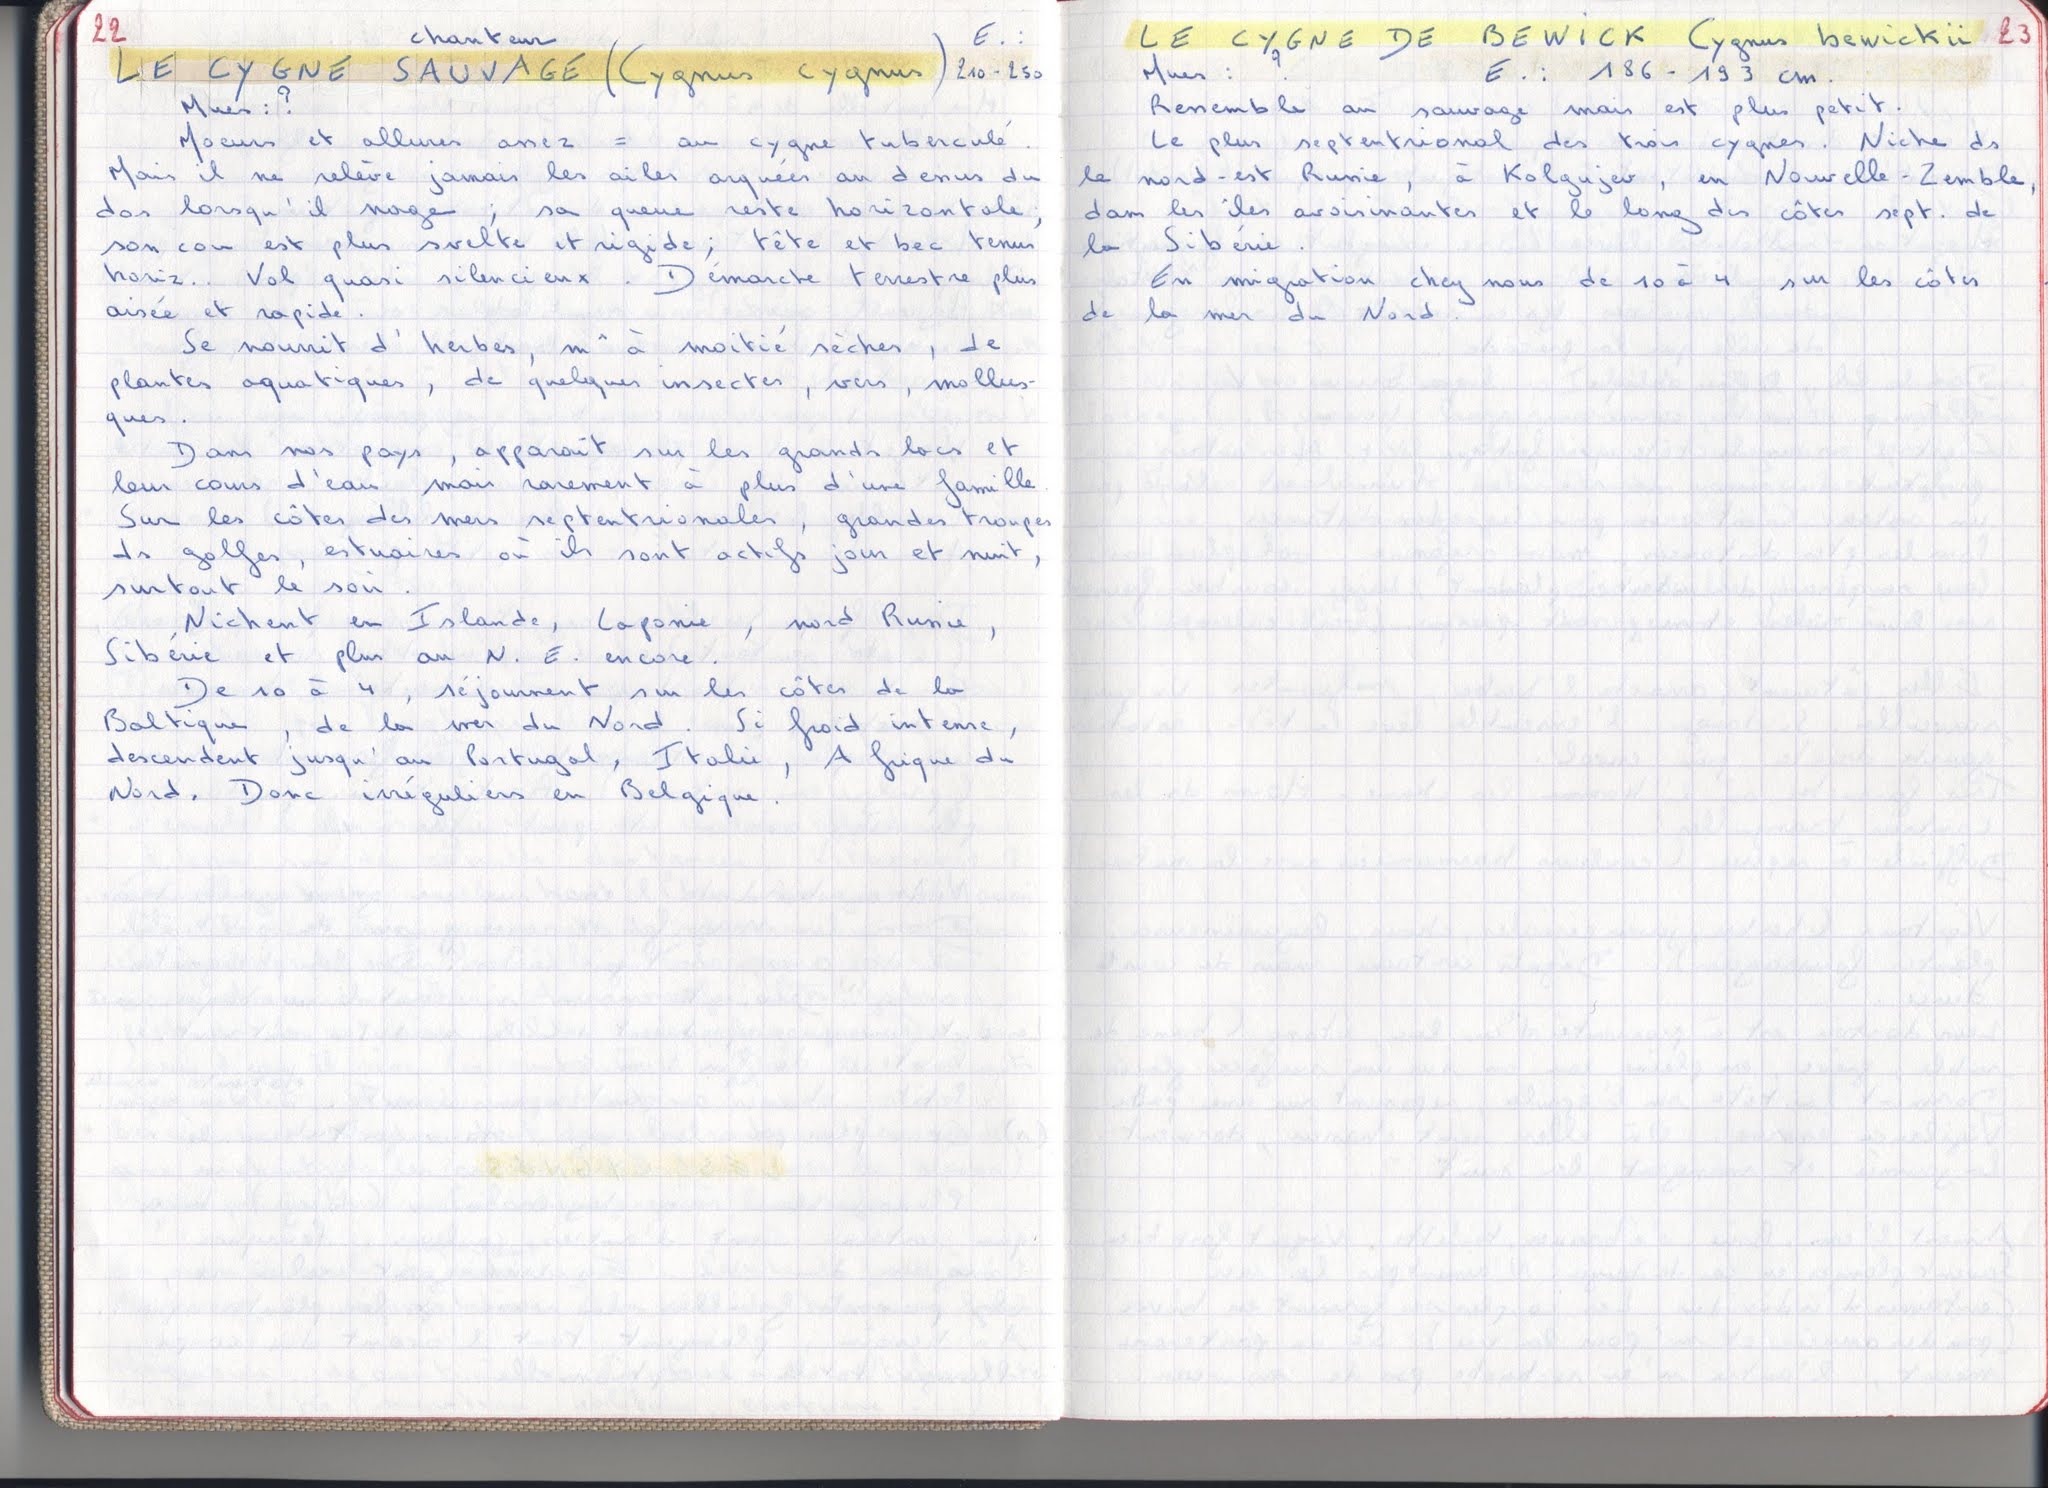 22
chanteur
LE CYGNE SAUVAGE (Cygnus cygnus) E.: 210-250
Mues : ?
Moeurs et allures assez = au cygne tuberculé.
Mais il ne relève jamais les ailes arquées au dessus du
dos lorsqu'il nage ; sa queue reste horizontale ;
son cou est plus svelte et rigide ; tête et bec tenus
horiz.. Vol quasi silencieux . Démarche terrestre plus
aisée et rapide.
Se nourrit d'herbes, m^ à moitié sèches, de
plantes aquatiques, de quelques insectes, vers, mollus-
ques.
Dans nos pays, apparaît sur les grands lacs et
leur cours d'eau mais rarement à plus d'une famille.
Sur les côtes des mers septentrionales, grandes troupes
ds golfes, estuaires où ils sont actifs jour et nuit,
surtout le soir.
Nichent en Islande, Laponie, nord Russie,
Sibérie et plus au N. E. encore.
De 10 à 4, séjournent sur les côtes de la
Baltique, de la mer du Nord. Si froid intense,
descendent jusqu'au Portugal, Italie, Afrique du
Nord. Donc irréguliers en Belgique.
LE CYGNE DE BEWICK Cygnus bewickii 23
Mues : ? E.: 186-193 cm.
Ressemble au sauvage mais est plus petit.
Le plus septentrional des trois cygnes. Niche ds
le nord-est Russie, à Kolgujev, en Nouvelle-Zemble,
dans les îles avoisinantes et le long des côtes sept. de
la Sibérie.
En migration chez nous de 10 à 4 sur les côtes
de la mer du Nord.